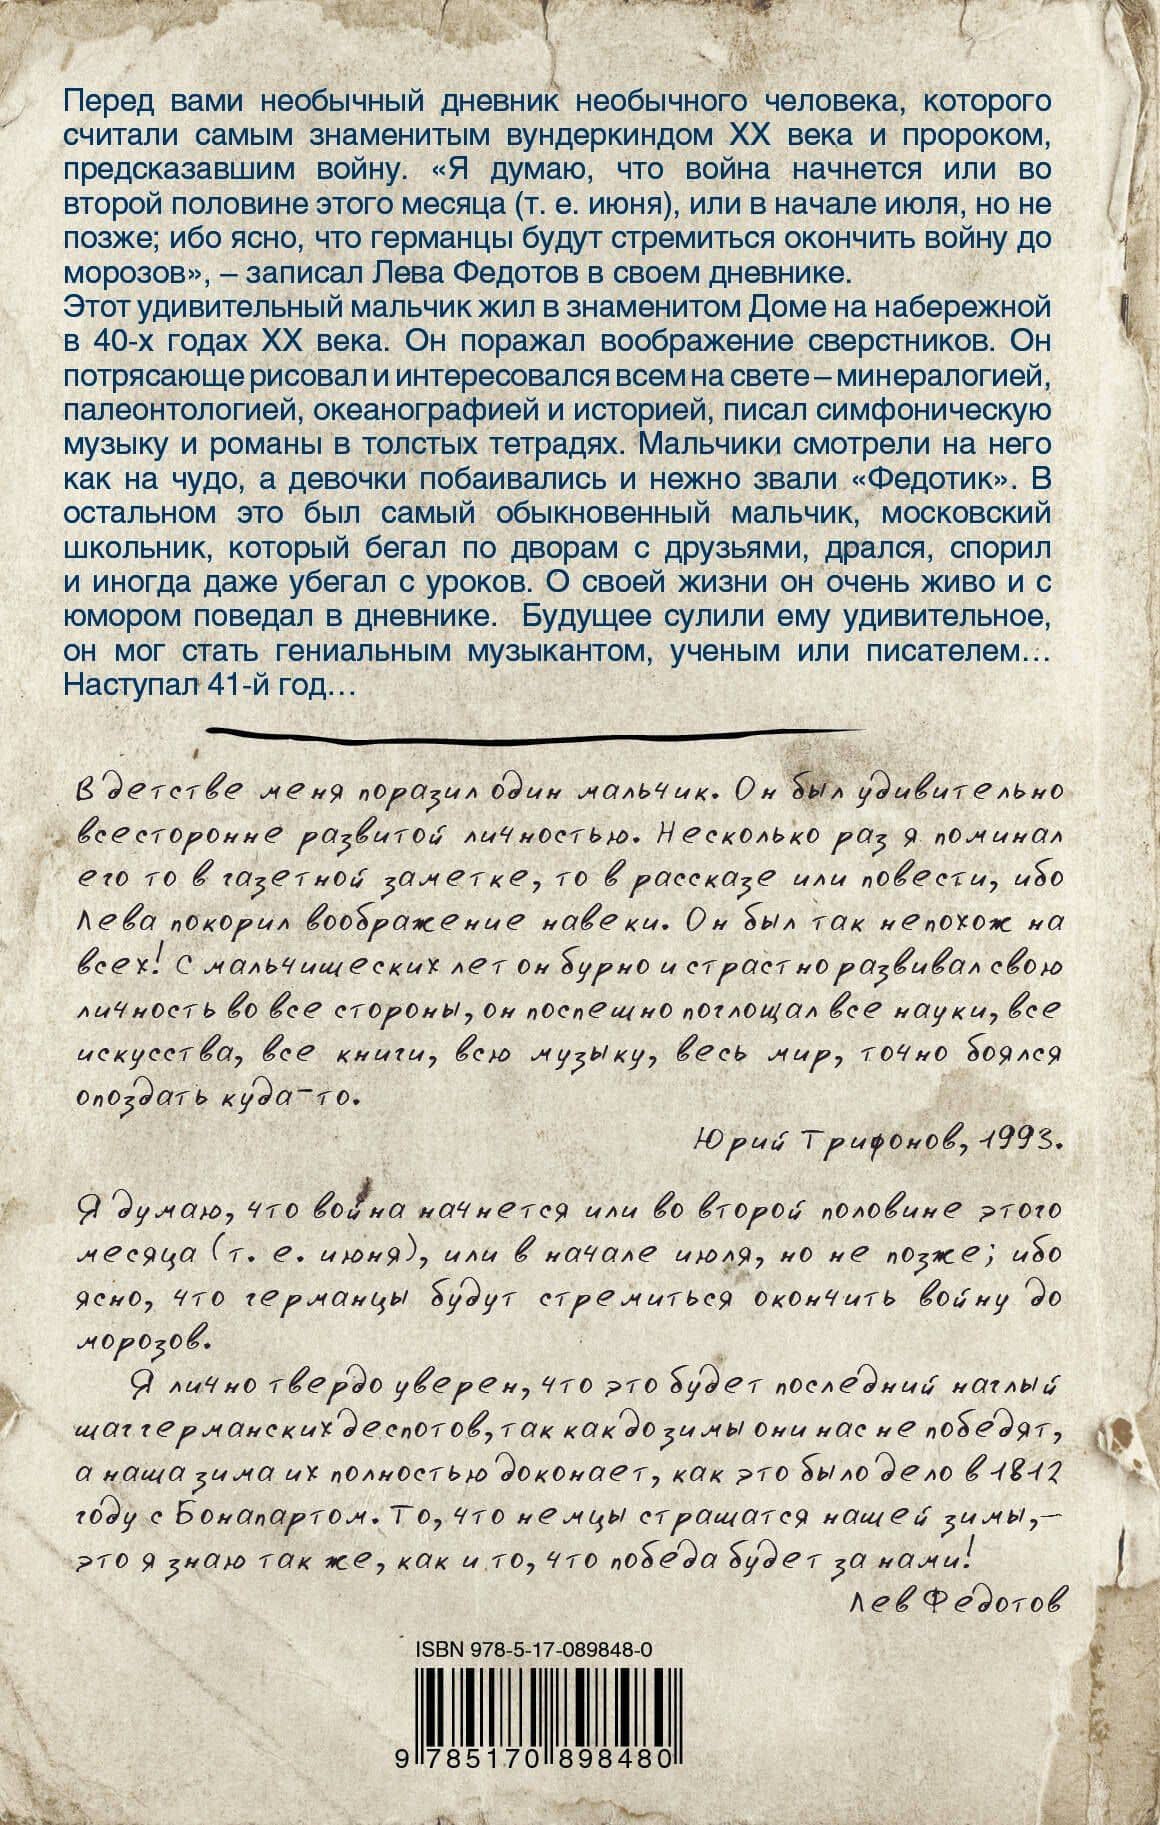 Перед вами необычный дневник необычного человека, которого
считали самым знаменитым вундеркиндом XX века и пророком,
предсказавшим войну. «Я думаю, что война начнется или во
второй половине этого месяца (т. е. июня), или в начале июля, но не
позже; ибо ясно, что германцы будут стремиться окончить войну до
морозов», – записал Лева Федотов в своем дневнике.
Этот удивительный мальчик жил в знаменитом Доме на набережной
в 40-х годах XX века. Он поражал воображение сверстников. Он
потрясающе рисовал и интересовался всем на свете – минералогией,
палеонтологией, океанографией и историей, писал симфоническую
музыку и романы в толстых тетрадях. Мальчики смотрели на него
как на чудо, а девочки побаивались и нежно звали «Федотик». В
остальном это был самый обыкновенный мальчик, московский
школьник, который бегал по дворам с друзьями, дрался, спорил
и иногда даже убегал с уроков. О своей жизни он очень живо и с
юмором поведал в дневнике. Будущее сулили ему удивительное,
он мог стать гениальным музыкантом, ученым или писателем…
Наступал 41-й год…
В детстве меня поразил один мальчик. Он был удивительно
всесторонне развитой личностью. Несколько раз я поминал
его то в газетной заметке, то в рассказе или повести, ибо
Лева покорил воображение навеки. Он был так непохож на
всех! С мальчишеских лет он бурно и страстно развивал свою
личность во все стороны, он поспешно поглощал все науки, все
искусства, все книги, всю музыку, весь мир, точно боялся
опоздать куда-то.
Юрий Трифонов, 1993.
Я думаю, что война начнется или во второй половине этого
месяца (т. е. июня), или в начале июля, но не позже; ибо
ясно, что германцы будут стремиться окончить войну до
морозов.
Я лично твердо уверен, что это будет последний наглый
шаг германских деспотов, так как до зимы они нас не победят,
а наша зима их полностью доконает, как это было дело в 1812
году с Бонапартом. То, что немцы страшатся нашей зимы,–
это я знаю так же, как и то, что победа будет за нами!
Лев Федотов
ISBN 978-5-17-089848-0
9 785170 898480